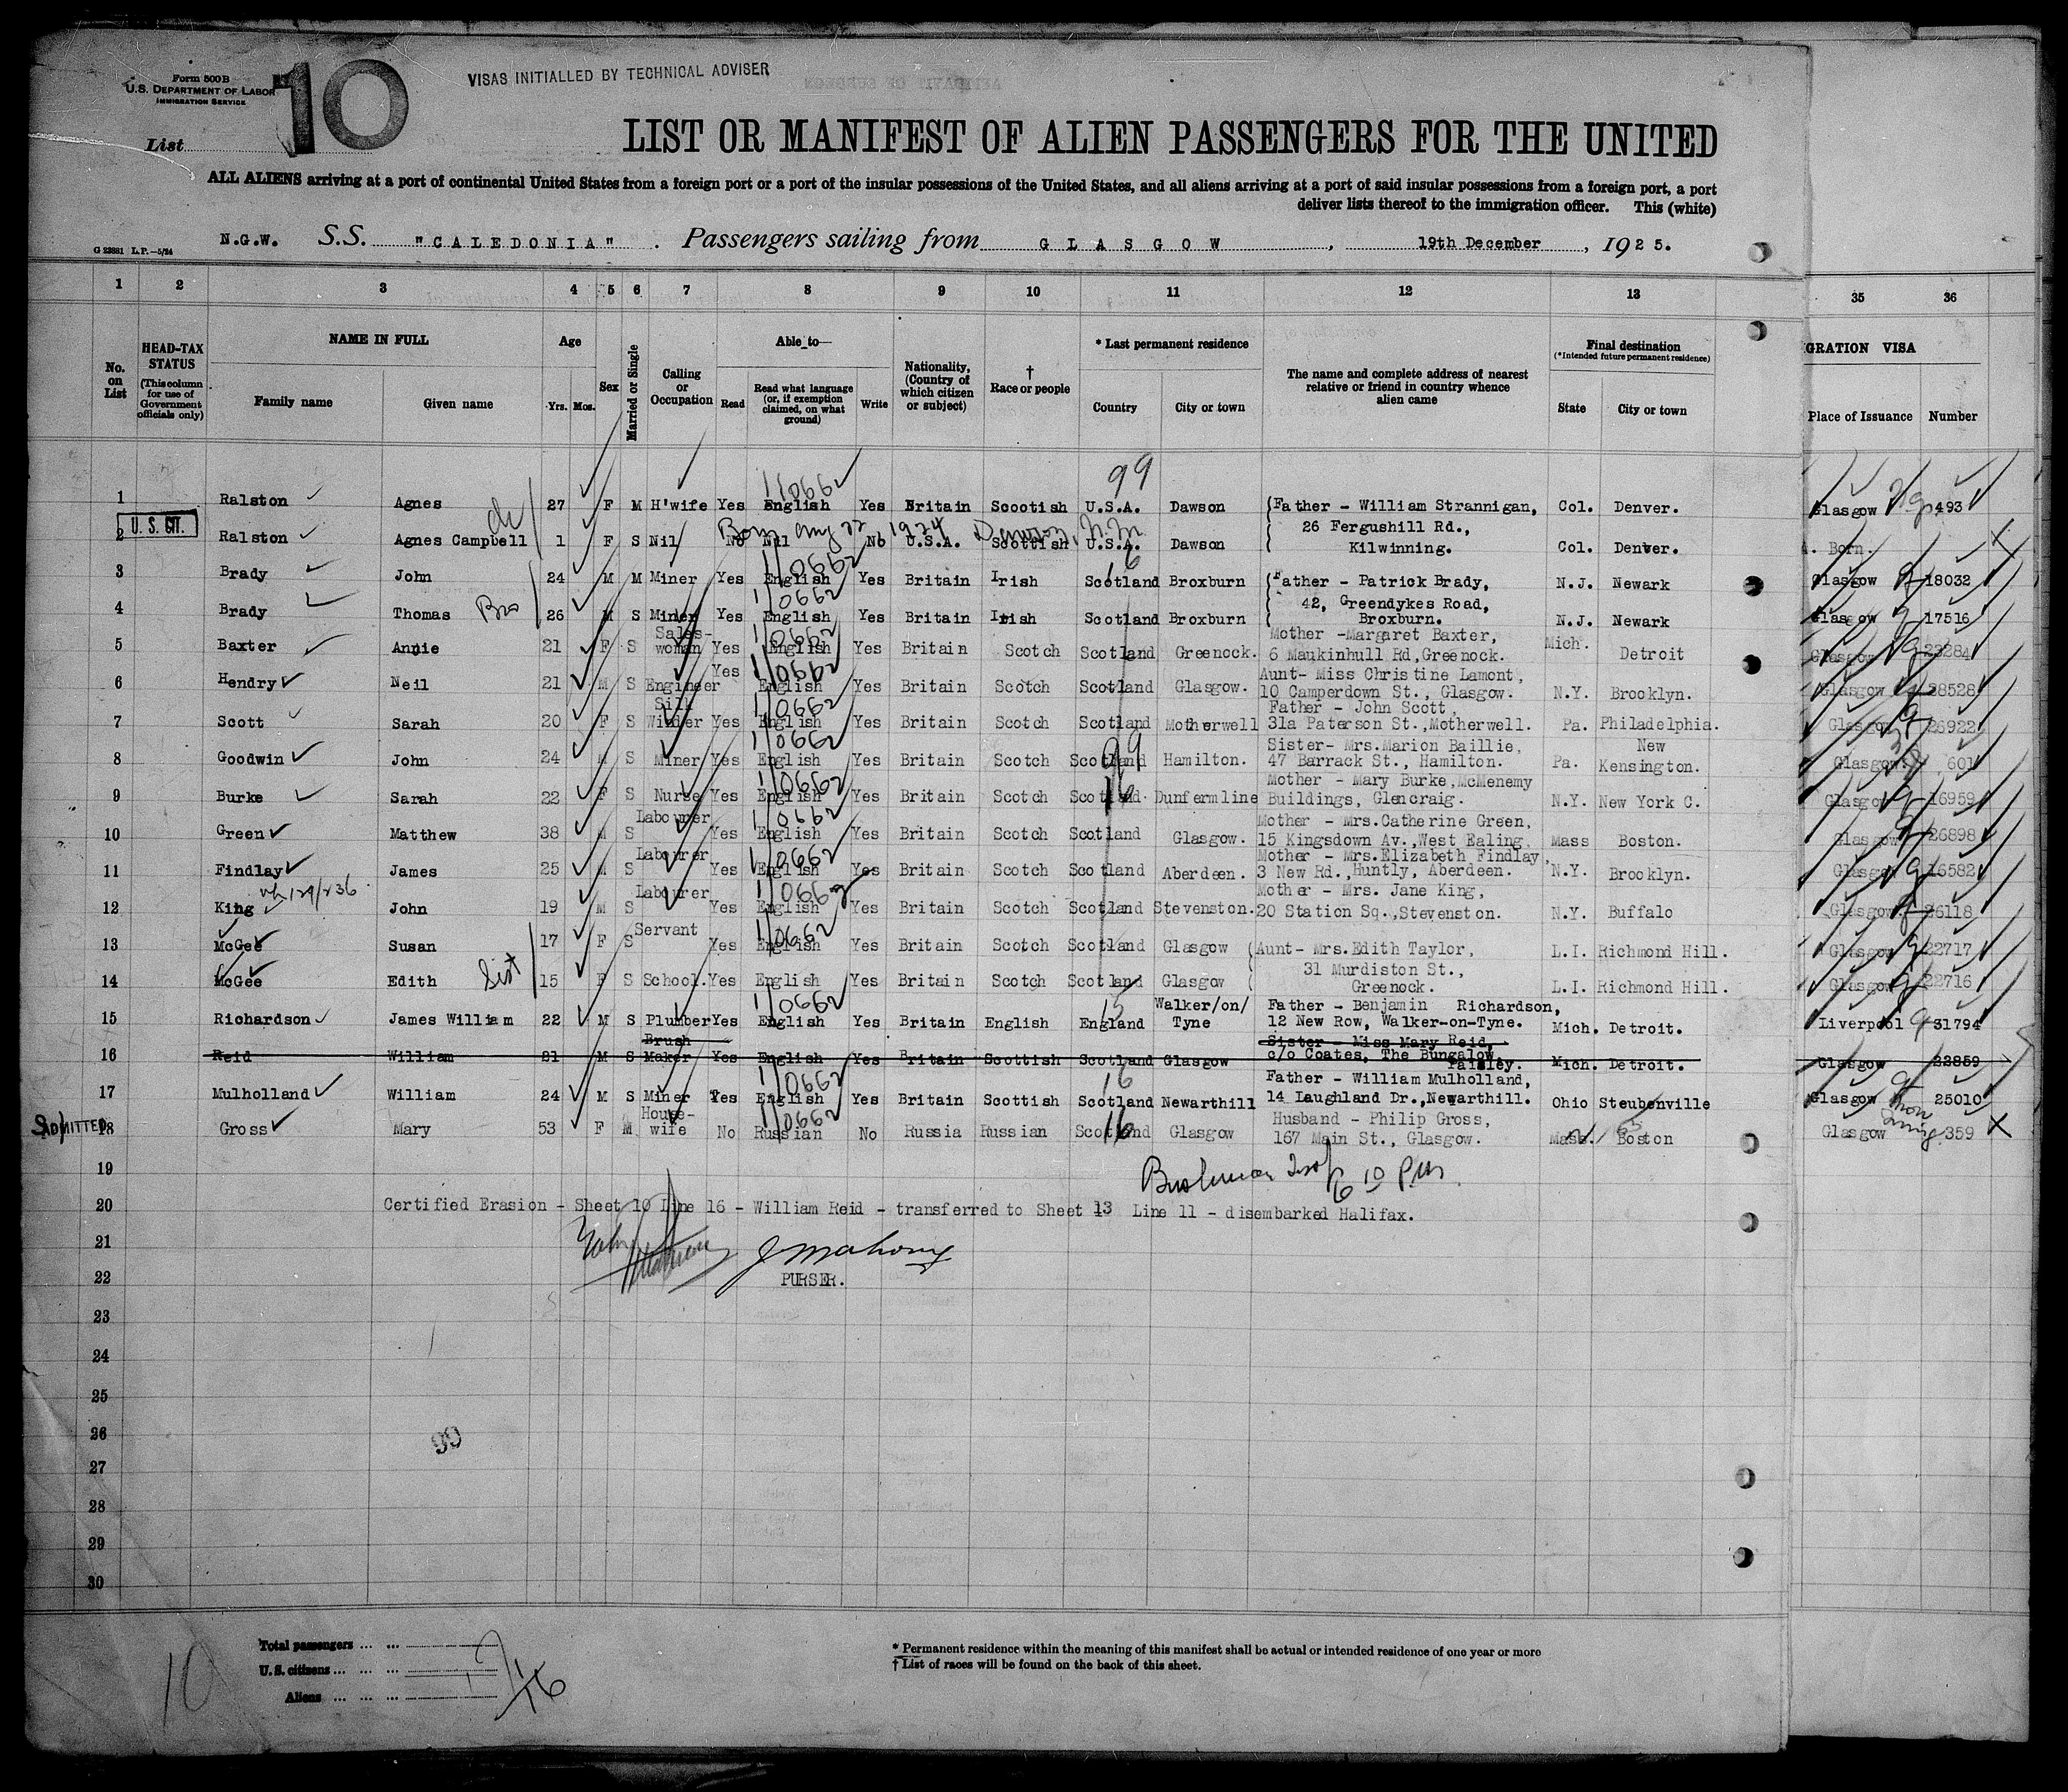 Form 500 B
U.S. DEPARTMENT OF LABOR
IMMIGRATION SERVICE
10
VISAS INITIALLED BY TECHNICAL ADVISER
List
LIST OR MANIFEST OF ALIEN PASSENGERS FOR THE UNITED
ALL ALIENS arriving at a port of continental United States from a foreign port or a port of the insular possessions of the United States, and all aliens arriving at a port of said insular possessions from a foreign port, a port
deliver lists thereof to the immigration officer. This (white)
G 23881 L.P.—5/24
N.G.W. S.S. "CALEDONIA". Passengers sailing from GLASGOW, 19th December, 1925.
1 2 3 4 5 6 7 8 9 10 11 12 13 35 36
No. on List
HEAD-TAX STATUS
(This column for use of Government officials only)
NAME IN FULL
Family name Given name
Age
Yrs. Mos.
Sex
Married or Single
Calling or Occupation
Able to—
Read
Read what language (or, if exemption claimed, on what ground)
Write
Nationality, (Country of which citizen or subject)
† Race or people
* Last permanent residence
Country City or town
The name and complete address of nearest relative or friend in country whence alien came
Final destination
(*Intended future permanent residence)
State City or town
GRATION VISA
Place of Issuance Number
99
1/0662
1 Ralston Agnes 27 F M H'wife Yes English Yes Britain Scootish U.S.A. Dawson {Father - William Strannigan, Col. Denver. Glasgow 493
26 Fergushill Rd.,
U. S. CIT.
Born Aug 22, 1924 Dawson, N.M.
2 Ralston Agnes Campbell 1 F S Nil No Nil No U.S.A. Scottish U.S.A. Dawson Kilwinning. Col. Denver. Born.
1/0662 16
3 Brady John 24 M M Miner Yes English Yes Britain Irish Scotland Broxburn {Father - Patrick Brady, N.J. Newark Glasgow 18032
1/0662
42, Greendykes Road,
4 Brady Thomas Bro 26 M S Miner Yes English Yes Britain Irish Scotland Broxburn Broxburn. N.J. Newark Glasgow 17516
1/0662
5 Baxter Annie 21 F S Sales-woman Yes English Yes Britain Scotch Scotland Greenock. Mother -Margaret Baxter, Mich. Detroit Glasgow 23284
6 Maukinhull Rd,Greenock.
1/0662
6 Hendry Neil 21 M S Engineer Yes English Yes Britain Scotch Scotland Glasgow. Aunt- Miss Christine Lamont, N.Y. Brooklyn. Glasgow 28528
10 Camperdown St., Glasgow.
1/0662
7 Scott Sarah 20 F S Silk Winder Yes English Yes Britain Scotch Scotland Motherwell Father - John Scott, Pa. Philadelphia. Glasgow 26922
31a Paterson St.,Motherwell.
1/0662
99
8 Goodwin John 24 M S Miner Yes English Yes Britain Scotch Scotland Hamilton. Sister- Mrs.Marion Baillie, Pa. New Kensington. Glasgow. 601
47 Barrack St., Hamilton.
1/0662
16
9 Burke Sarah 22 F S Nurse Yes English Yes Britain Scotch Scotland Dunfermline Mother - Mary Burke,McMenemy N.Y. New York C. Glasgow 16959
Buildings, Glencraig.
1/0662
10 Green Matthew 38 M S Labourer Yes English Yes Britain Scotch Scotland Glasgow. Mother - Mrs.Catherine Green, Mass Boston. Glasgow 26898
15 Kingsdown Av.,West Ealing
1/0662
11 Findlay James 25 M S Labourer Yes English Yes Britain Scotch Scotland Aberdeen. Mother - Mrs.Elizabeth Findlay, N.Y. Brooklyn. Glasgow 16582
3 New Rd.,Huntly, Aberdeen.
1/0662
12 King John 19 M S Labourer Yes English Yes Britain Scotch Scotland Stevenston. Mother - Mrs. Jane King, N.Y. Buffalo Glasgow 26118
20 Station Sq.,Stevenston.
1/0662
13 McGee Susan 17 F S Servant Yes English Yes Britain Scotch Scotland Glasgow {Aunt- Mrs.Edith Taylor, L.I. Richmond Hill. Glasgow 22717
31 Murdiston St.,
14 McGee Edith Sist 15 F S School. Yes English Yes Britain Scotch Scotland Glasgow Greenock. L.I. Richmond Hill. Glasgow 22716
1/0662
15
15 Richardson James William 22 M S Plumber Yes English Yes Britain English England Walker/on/Tyne Father - Benjamin Richardson, Mich. Detroit. Liverpool 31794
12 New Row, Walker-on-Tyne.
16 Reid William 21 M S Brush Maker Yes English Yes Britain Scottish Scotland Glasgow Sister - Miss Mary Reid, Mich. Detroit. Glasgow 23859
c/o Coates, The Bungalow,
Paisley.
1/0662
16
17 Mulholland William 24 M S Miner Yes English Yes Britain Scottish Scotland Newarthill Father - William Mulholland, Ohio Steubenville Glasgow 25010
14 Laughland Dr.,Newarthill.
1/0662
16
ADMITTED
18 Gross Mary 53 F M House-wife No Russian No Russia Russian Scotland Glasgow Husband - Philip Gross, Mass. Boston Glasgow 359
167 Main St., Glasgow.
19
6 10 P.M.
20 Certified Erasion - Sheet 10 Line 16 - William Reid - transferred to Sheet 13 Line 11 - disembarked Halifax.
21 J Mahony
22 PURSER.
23
24
25
26
99
27
28
29
30
10
Total passengers ... ...
U.S. citizens ... ... ...
Aliens ... ... ...
1/16
* Permanent residence within the meaning of this manifest shall be actual or intended residence of one year or more
† List of races will be found on the back of this sheet.